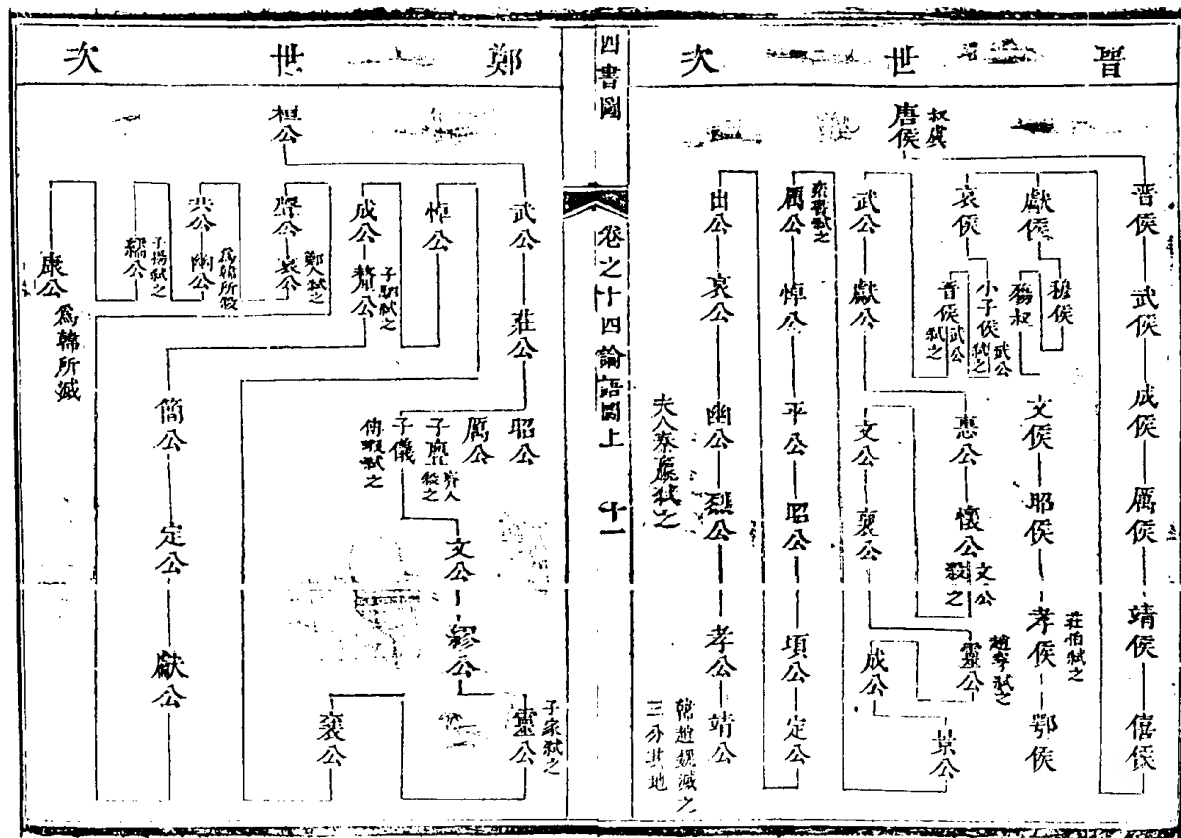 晋世次
唐侯
叔虞
晋侯
武侯
成侯
厲侯
靖侯
僖侯
獻侯
穆侯
殤叔
文侯
昭侯
孝侯
莊伯弒之
鄂侯
哀侯
小子侯
武公弒之
晋侯
武公弒之
武公
獻公
惠公
懷公
文公殺之
文公
襄公
靈公
趙穿弒之
成公
景公
厲公
欒書弒之
悼公
平公
昭公
頃公
定公
出公
哀公
幽公
夫人秦嬴弒之
烈公
孝公
靖公
韓趙魏滅之
三分其地
四書圖
卷之十四論語圖上
十一
鄭世次
桓公
武公
莊公
昭公
厲公
子亹
齊人殺之
子儀
傅瑕弒之
文公
繆公
靈公
子家弒之
襄公
悼公
成公
釐公
子駟弒之
簡公
定公
獻公
聲公
哀公
鄭人弒之
共公
幽公
爲韓所殺
繻公
子陽弒之
康公
爲韓所滅